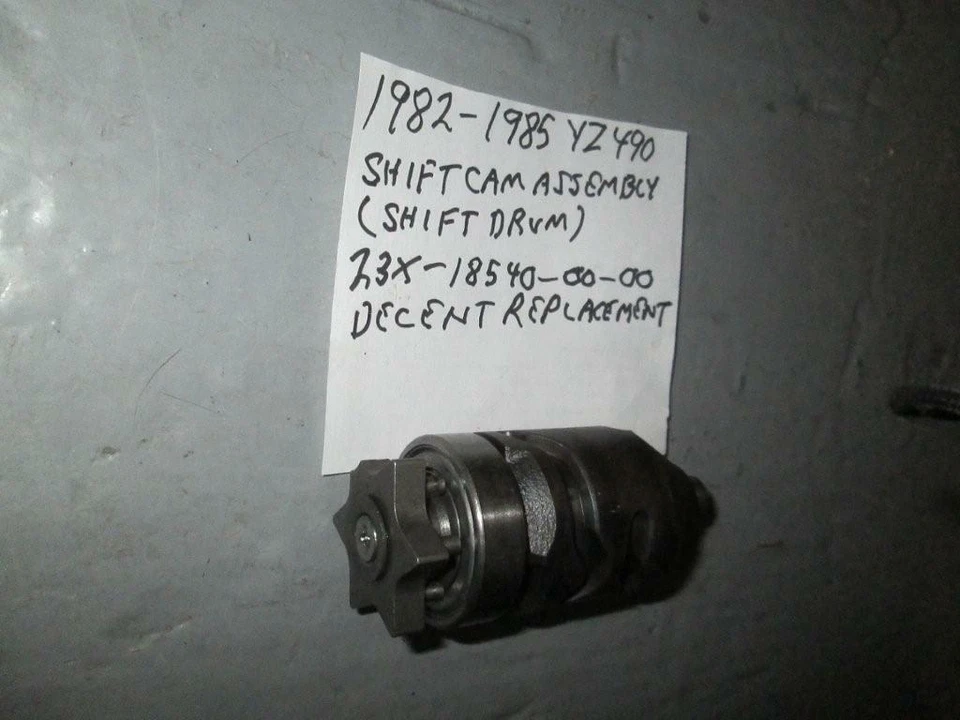 1982-1985 YZ490
SHIFT CAM ASSEMBLY
(SHIFT DRUM)
23X-18540-00-00
DECENT REPLACEMENT